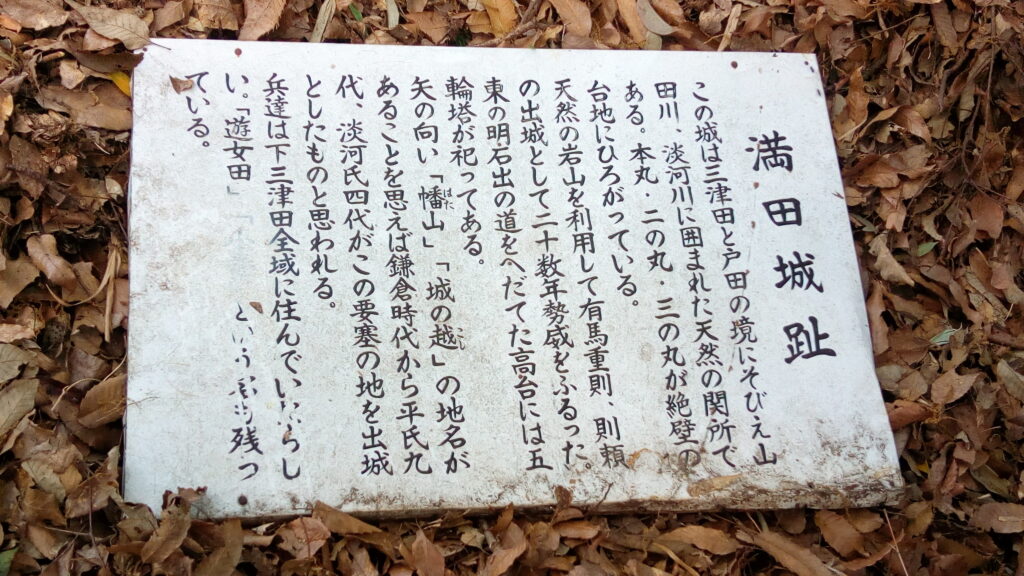 満田城趾
この城は三津田と戸田の境にそびえ山
田川、淡河川に囲まれた天然の関所で
ある。本丸・二の丸・三の丸が絶壁の
台地にひろがっている。
天然の岩山を利用して有馬重則、則頼
の出城として二十数年勢威をふるった。
東の明石出の道をへだてた高台には五
輪塔が祀ってある。
矢の向い「幡山」「城の越」の地名が
はた
あることを思えば鎌倉時代から平氏九
代、淡河氏四代がこの要塞の地を出城
としたものと思われる。
兵達は下三津田全域に住んでいたらし
い。「遊女田」「
という
残っ
ている。